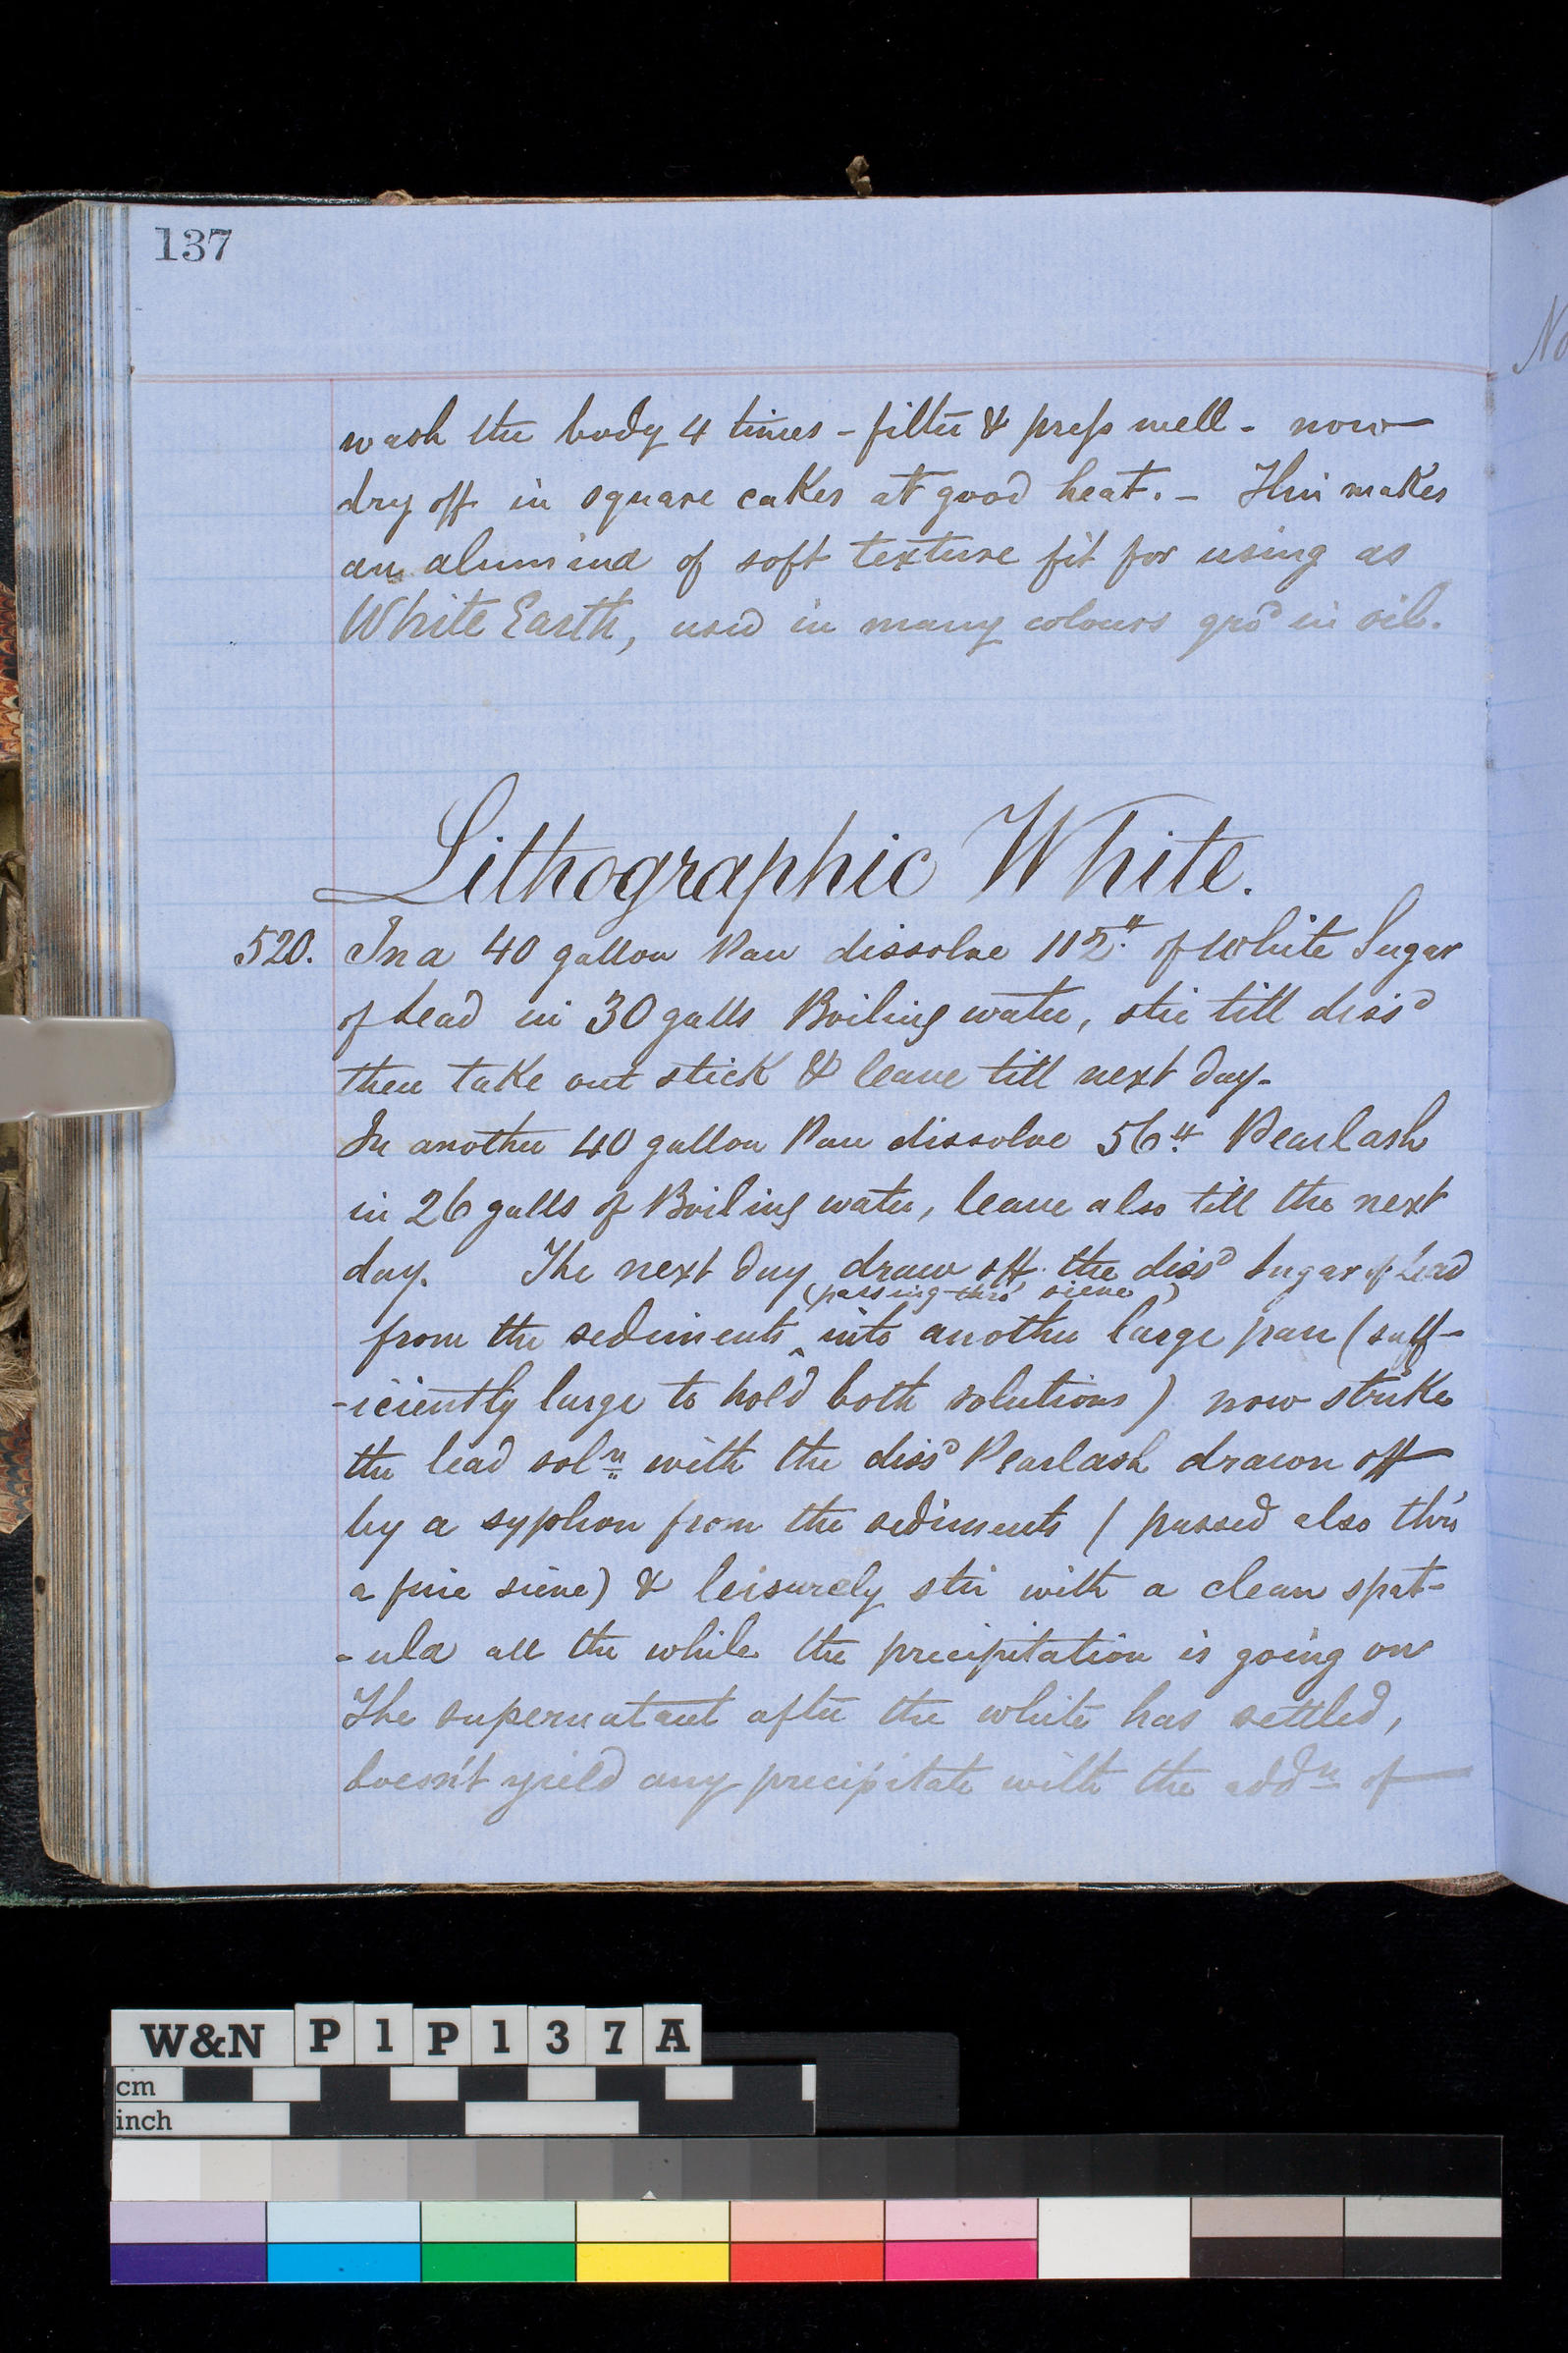 137
No
wash the body 4 times - filter & press well - now
dry off in square cakes at good heat. - This makes
an alumina of soft texture fit for using as
White Earth, used in many colours grd in oil.
Lithographic White.
520. In a 40 gallon Pan dissolve 112 lb of White Sugar
of Lead in 30 galls Boiling water, stir till dissd
then take out stick & leave till next day-
In another 40 gallon Pan dissolve 56 lb Pearlash
in 26 galls of Boiling water, leave also till the next
day. The next day draw off the dissd Sugar of Lead
(passing thro' sieve)
from the sediments ‸ into another large pan (suff-
-iciently large to hold both solutions) now strike
the lead soln with the dissd Pearlash drawn off
by a syphon from the sediments (passed also thro'
a fine sieve) & leisurely stir with a clean spat-
-ula all the while the precipitation is going on
The supernatant after the white has settled,
doesn't yield any precipitate with the addn of
W&N P1P137A
cm
inch